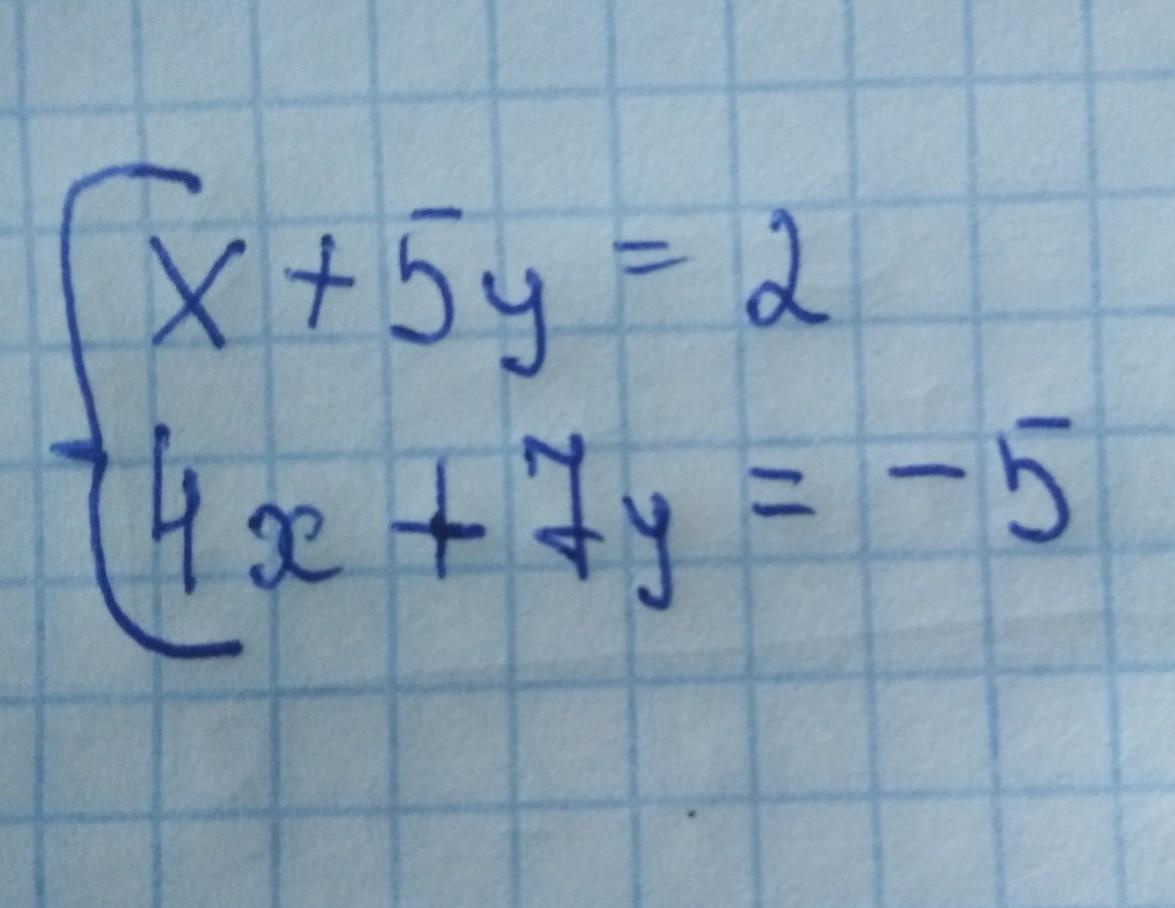 x + 5y = 2
4x + 7y = -5